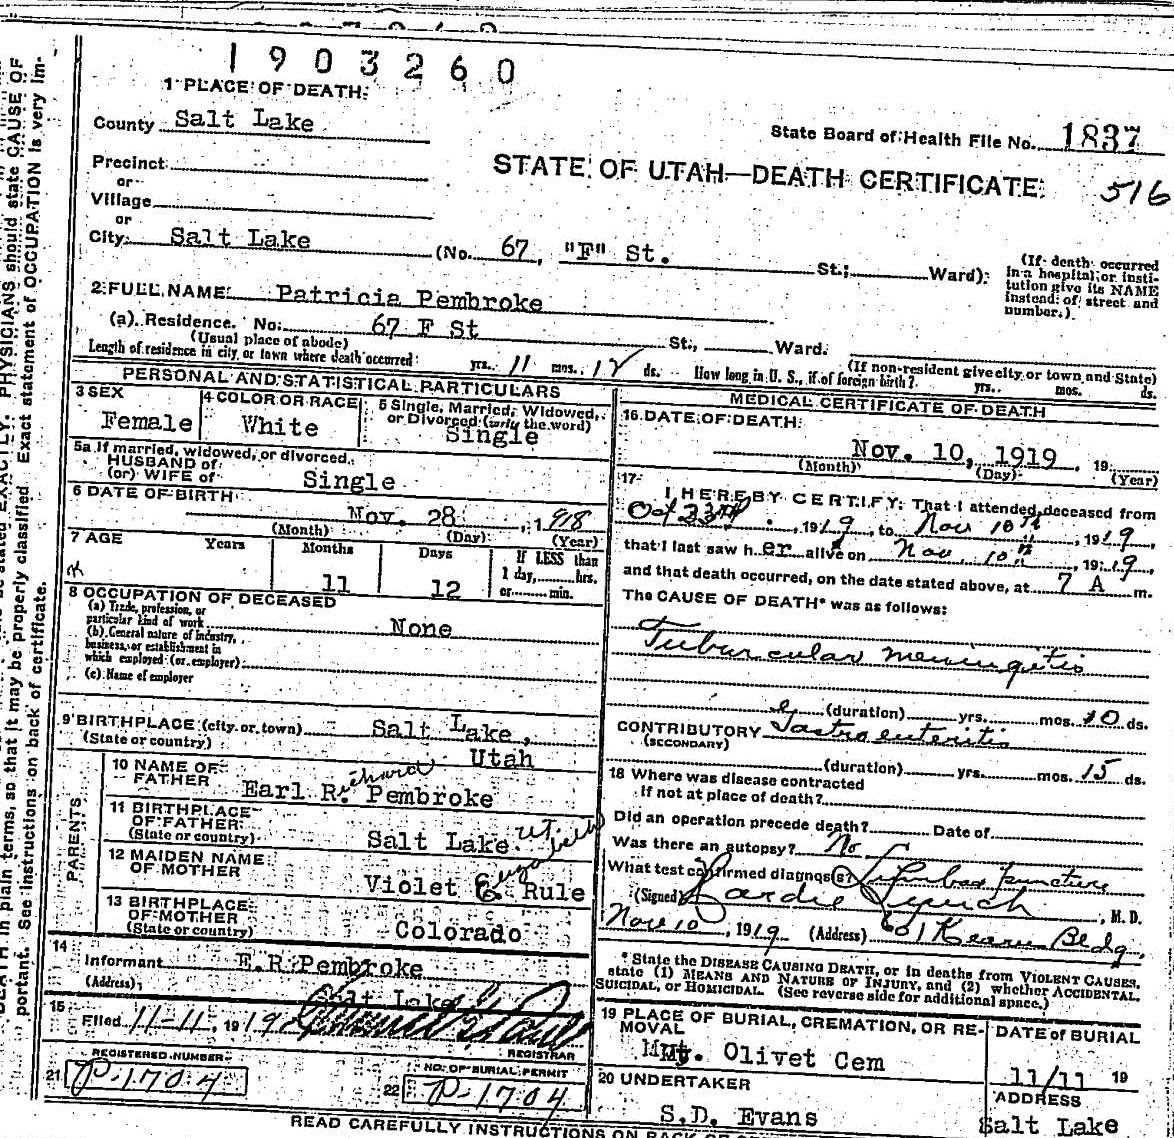 1903260
1 PLACE OF DEATH:
County Salt Lake
State Board of Health File No. 1837
Precinct
or
STATE OF UTAH—DEATH CERTIFICATE
516
Village
or
City Salt Lake (No. 67, "F" St. St.; Ward)
(If death occurred in a hospital or institution give its NAME instead of street and number.)
2 FULL NAME Patricia Pembroke
(a) Residence. No. 67 F St St., Ward.
(Usual place of abode)
(If non-resident give city or town and State)
Length of residence in city or town where death occurred yrs. 11 mos. 12 ds. How long in U. S., if of foreign birth? yrs. mos. ds.
PERSONAL AND STATISTICAL PARTICULARS
3 SEX
Female
4 COLOR OR RACE
White
5 Single, Married, Widowed, or Divorced (write the word)
Single
5a If married, widowed, or divorced
HUSBAND of
(or) WIFE of Single
6 DATE OF BIRTH
Nov. 28, 1918
(Month) (Day) (Year)
7 AGE Years Months Days If LESS than
1 day, hrs.
or min.
11 12
8 OCCUPATION OF DECEASED
(a) Trade, profession, or
particular kind of work None
(b) General nature of industry,
business, or establishment in
which employed (or employer)
(c) Name of employer
9 BIRTHPLACE (city or town) Salt Lake,
(State or country) Utah
PARENTS
10 NAME OF
FATHER Earl Richard Pembroke
11 BIRTHPLACE
OF FATHER
(State or country) Salt Lake Ut.
12 MAIDEN NAME
OF MOTHER Violet Elizabeth Rule
13 BIRTHPLACE
OF MOTHER
(State or country) Colorado
14
Informant E.R. Pembroke
(Address) Salt Lake
15
Filed 11-11, 1919
REGISTRAR
REGISTERED NUMBER
21 P-1704
NO. OF BURIAL PERMIT
22 P-1704
MEDICAL CERTIFICATE OF DEATH
16 DATE OF DEATH
Nov. 10, 1919, 19
(Month) (Day) (Year)
17
I HEREBY CERTIFY, That I attended deceased from
Oct 23rd, 1919, to Nov 10th, 1919,
that I last saw her alive on Nov. 10th, 1919,
and that death occurred, on the date stated above, at 7 A m.
The CAUSE OF DEATH* was as follows:
Tubercular meningitis
(duration) yrs. mos. 10 ds.
CONTRIBUTORY Gastro enteritis
(SECONDARY)
(duration) yrs. mos. 15 ds.
18 Where was disease contracted
if not at place of death?
Did an operation precede death? Date of
Was there an autopsy? No
What test confirmed diagnosis? Lumbar puncture
(Signed) Lynch, M. D.
Nov 10, 1919 (Address) 601 Kearn Bldg.
* State the DISEASE CAUSING DEATH, or in deaths from VIOLENT CAUSES,
state (1) MEANS AND NATURE OF INJURY, and (2) whether ACCIDENTAL,
SUICIDAL, or HOMICIDAL. (See reverse side for additional space.)
19 PLACE OF BURIAL, CREMATION, OR REMOVAL
Mt. Olivet Cem
DATE OF BURIAL
11/11 19
20 UNDERTAKER
S.D. Evans
ADDRESS
Salt Lake
READ CAREFULLY INSTRUCTIONS ON BACK OF
PHYSICIANS should state CAUSE OF
DEATH in plain terms, so that it may be properly classified. Exact statement of OCCUPATION is very important. See instructions on back of certificate.